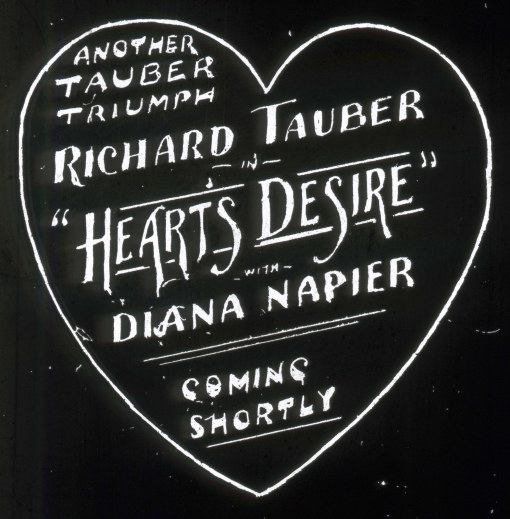 ANOTHER
TAUBER
TRIUMPH
RICHARD TAUBER
- IN -
"HEARTS DESIRE"
- WITH -
DIANA NAPIER
COMING
SHORTLY